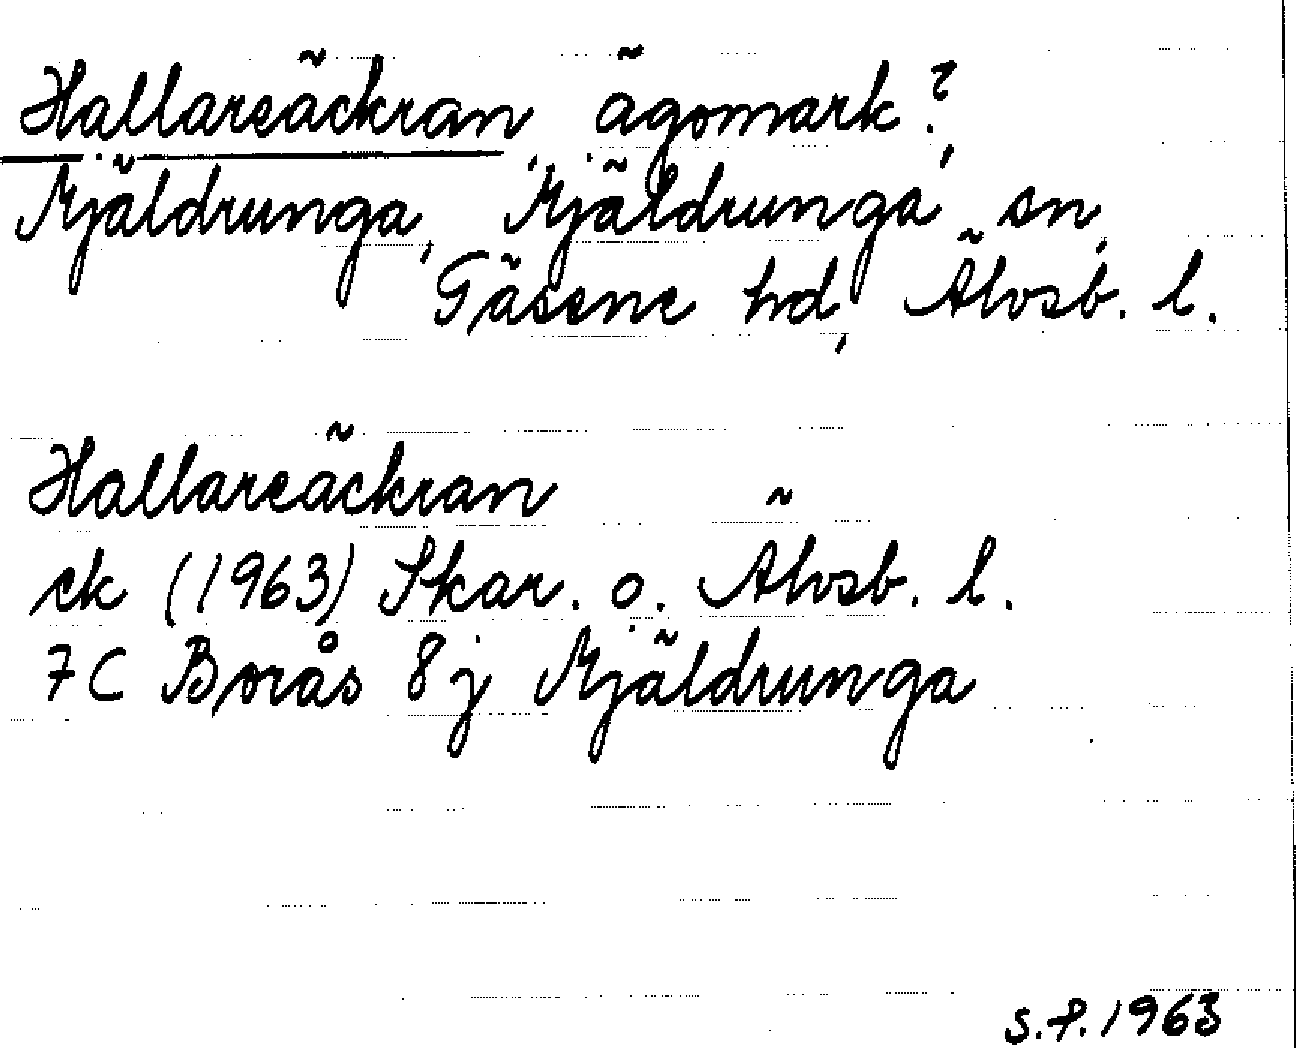 Hallareäckran ägomark?,
Mjäldrunga, Mjäldrunga sn,
Gäsene hd, Älvsb. l.
Hallareäckran
ek (1963) Skar. o. Älvsb. l.
7C Borås 8j Mjäldrunga
S.F. 1963